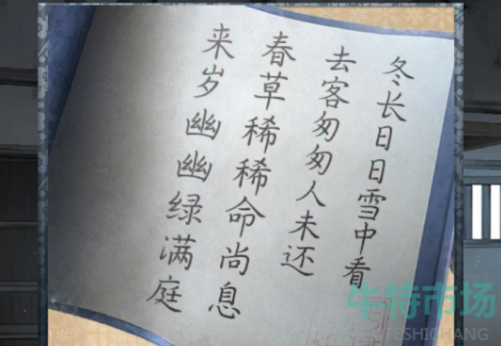 冬长日日雪中看
去客匆匆人未还
春草稀稀命尚息
来岁幽幽绿满庭
牛特市场